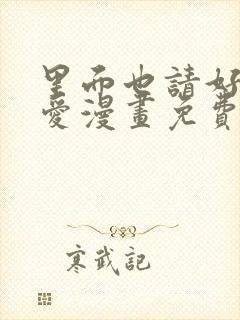 里而也請好
愛漫畫免費
寒武記